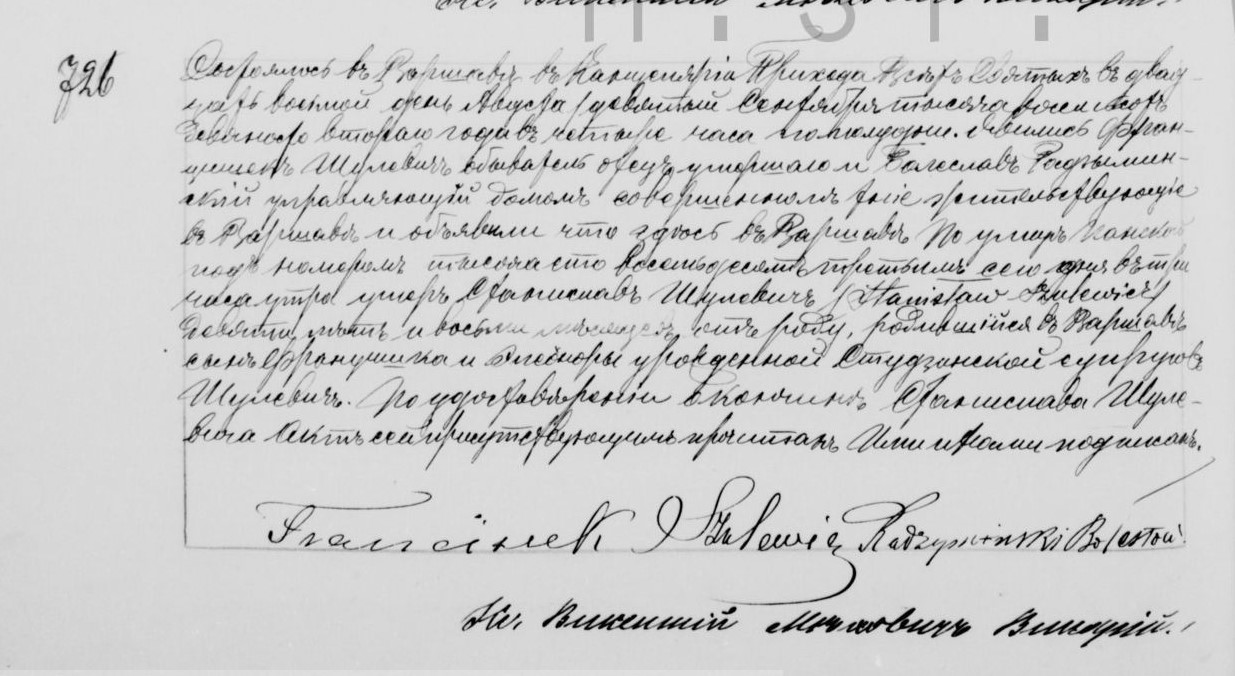 726
Состоялось въ Варшавѣ въ Канцеляріи Прихода Всѣхъ Святыхъ въ двад-
цать восьмой день Августа /девятый Сентября тысяча восемьсотъ
девяносто втораго года въ четыре часа по полудни. Явились Фран-
цишекъ Шулевичъ обыватель отецъ умершаго и Болеславъ Радзымин-
скій управляющій домомъ совершеннолѣтніе жительствующіе
въ Варшавѣ и объявили что здѣсь въ Варшавѣ По улицѣ Панской
подъ номеромъ тысяча сто восемьдесятъ третьимъ сего дня въ три
часа утра умеръ Станиславъ Шулевичъ /Stanisław Szulewicz/
девяти лѣтъ и восьми мѣсяцевъ отъ роду, родившійся въ Варшавѣ
сынъ Францишка и Элеоноры урожденной Студзинской супруговъ
Шулевичъ. По удостовѣреніи о кончинѣ Станислава Шуле-
вича Актъ сей присутствующимъ прочитанъ Ими и Нами подписанъ.
Franciszek Szulewicz Radzymiński Bolesław
Кс. Викентій Викарій.